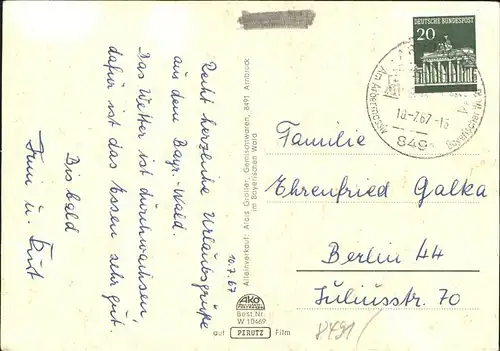 10.7.67
Recht herzliche Urlaubsgrüße
aus dem Bayr.-Wald.
Das Wetter ist durchwachsen,
dafür ist das Essen sehr gut.
Bis bald
u.
Alleinverkauf: Alois Gemischtwaren, 8491 Arnbruck
im Bayerischen Wald
AKO
Best.Nr.
W 10469
auf PERUTZ Film
DEUTSCHE BUNDESPOST
20
10.-7.67.-15
849
Bayerischer Wald
Familie
Ehrenfried Galka
Berlin 44
Juliusstr. 70
8491